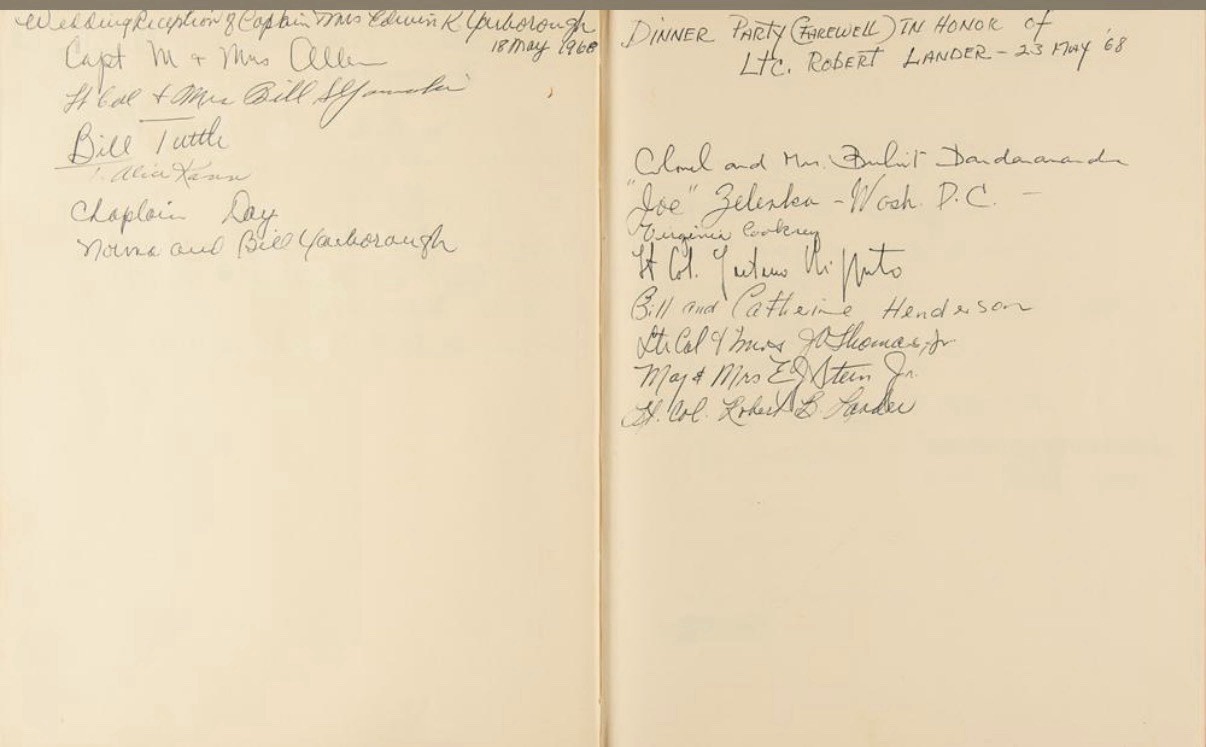 Wedding Reception of Captain Mrs Edwin K Yarborough
18 May 1968
Capt M + Mrs Allen
Lt Col + Mrs Bill
Bill Tuttle
Chaplain Day
Norma and Bill Yarborough
DINNER PARTY (FAREWELL) IN HONOR of
Ltc. ROBERT LANDER - 23 MAY '68
Colonel and Mrs.
"Joe" Zelenka - Wash. D.C. -
Virginia
Lt Col.
Bill and Catherine Henderson
Lt Col & Mrs Thomas, Jr
Maj & Mrs E J Stern Jr.
Lt. Col. Robert B. Lander